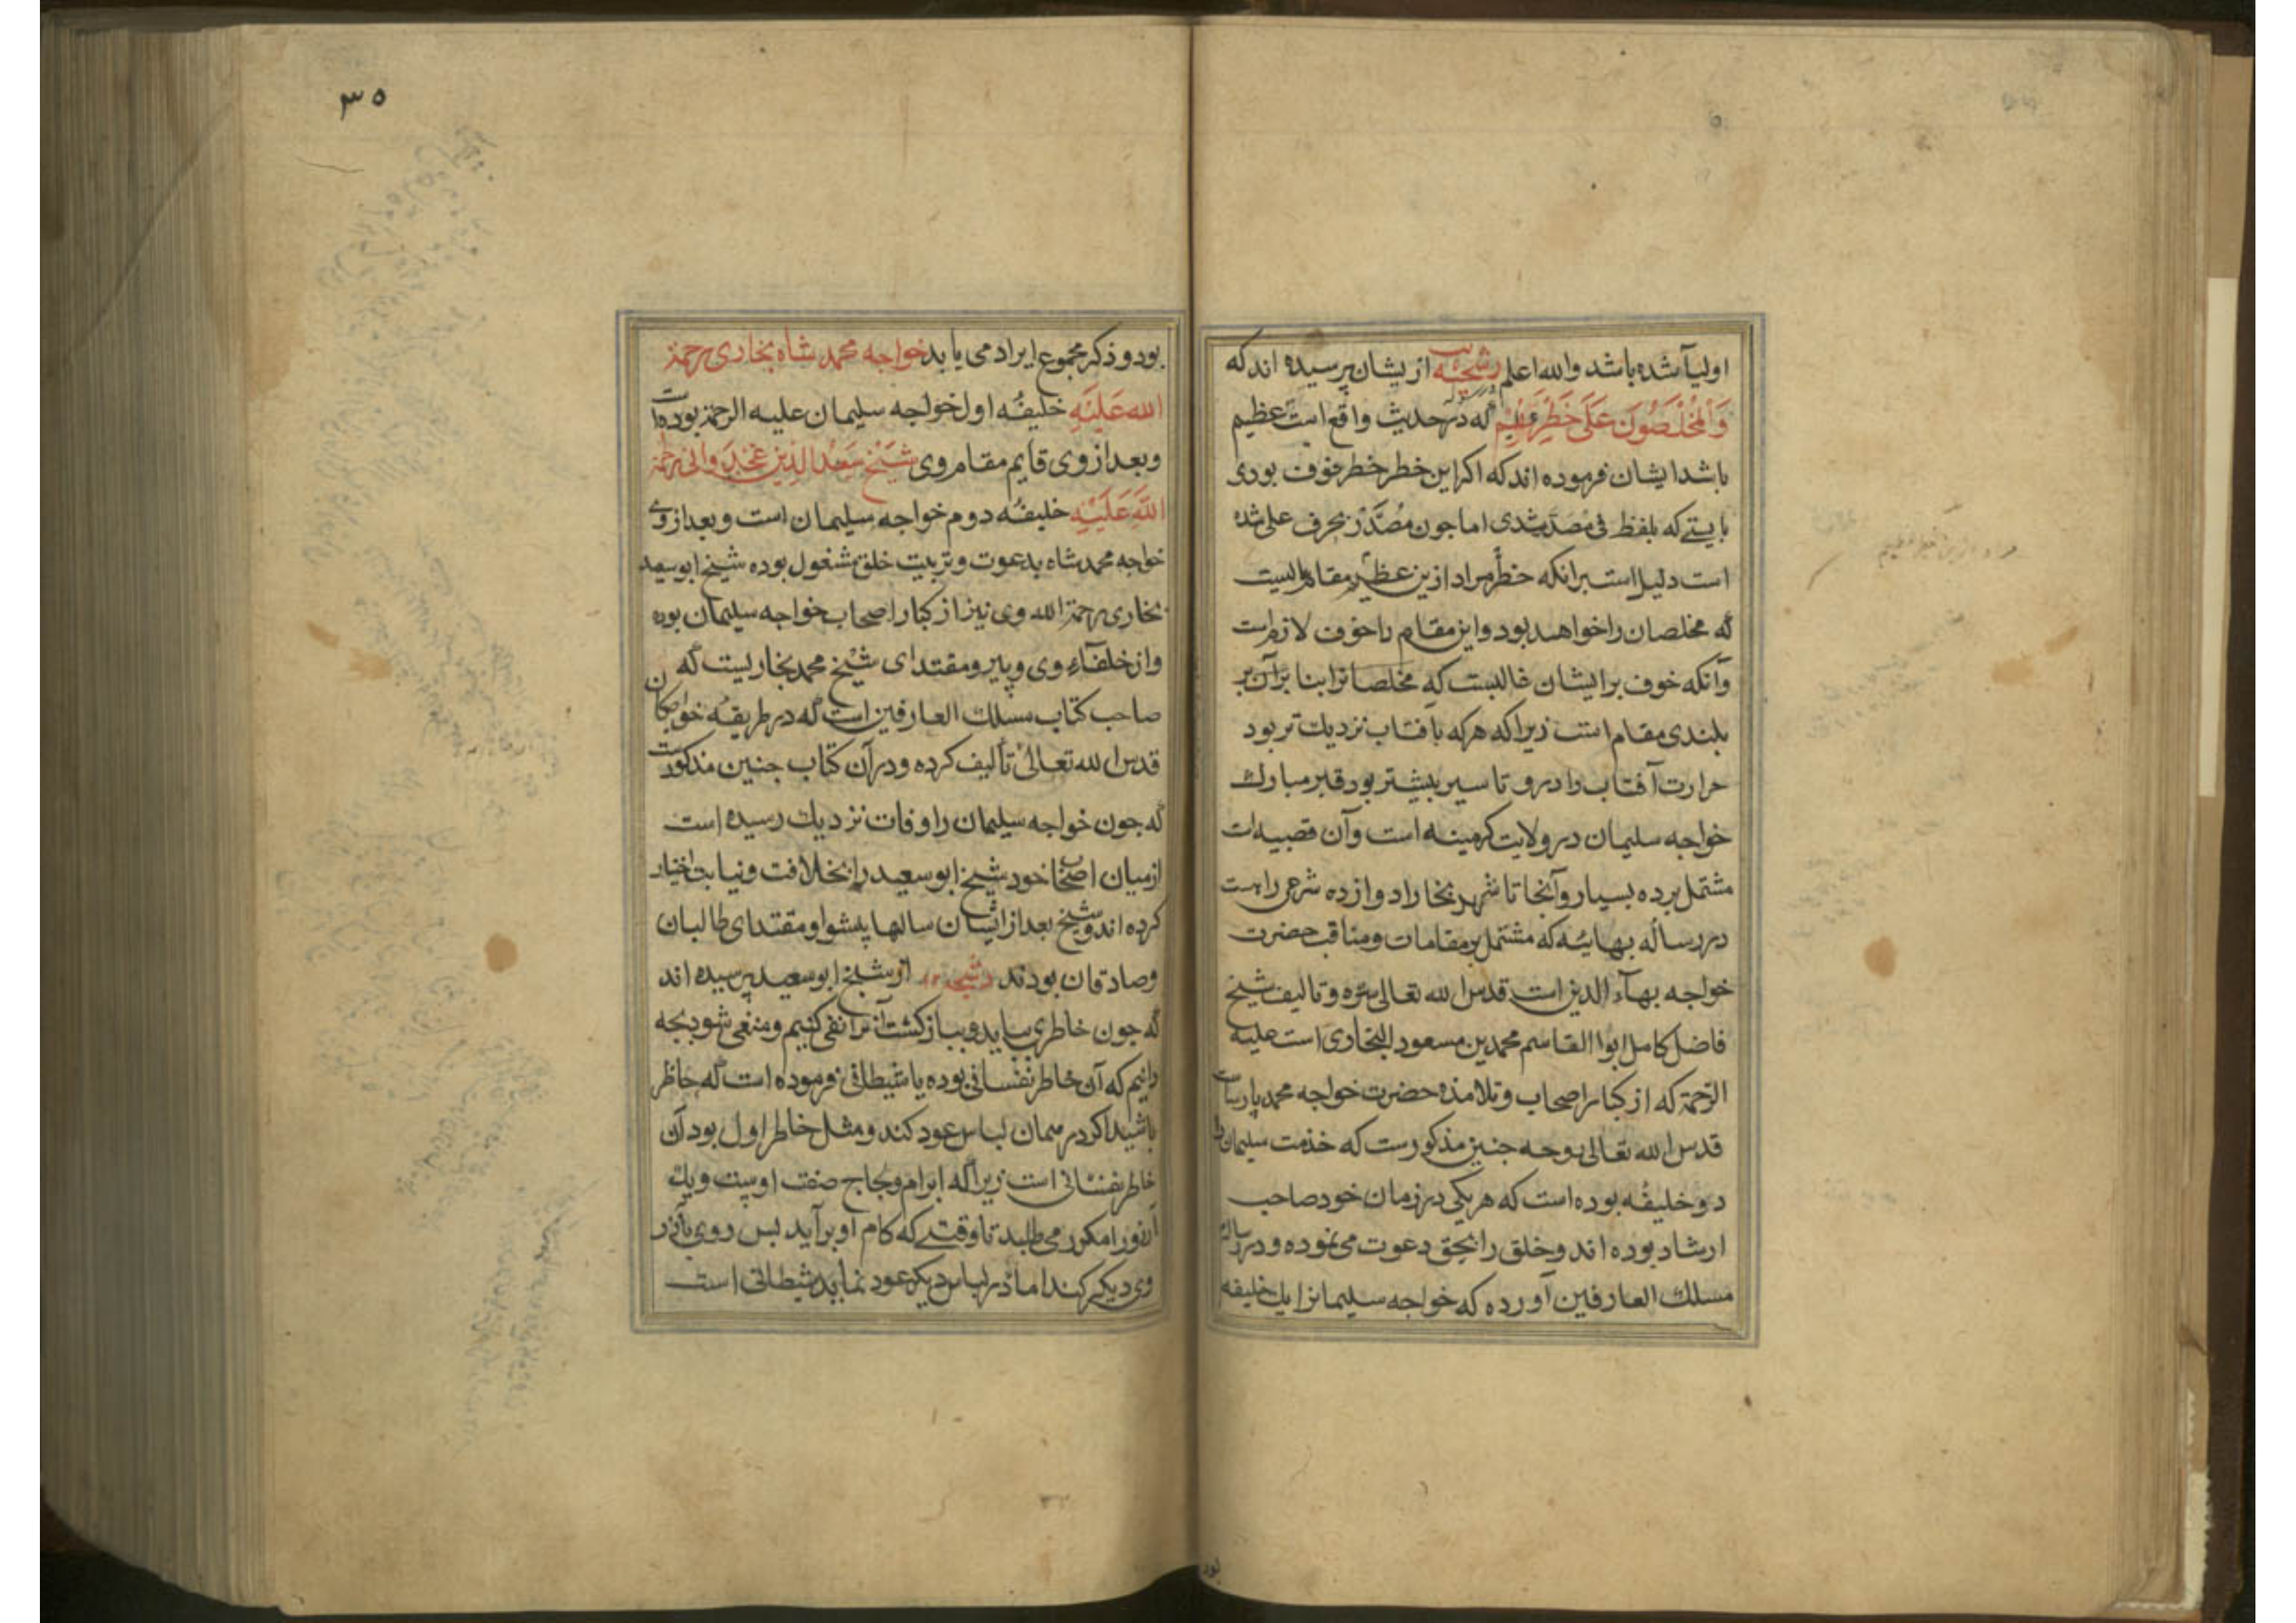 اولیآ شده باشد والله اعلم رشحه از یشان پرسیده اند که
وَالْمُخْلَصُونَ عَلَی خَطَرٍ عَظِیْمٍ که در حدیث واقع است عظیم
باشد ایشان فرموده اند که اکر این خطر خطر خوف بودی
بایستے که بلفظ فی مُصَدَّر شدی اما جون مُصَدَّر بحرف علی شده
است دلیل است برانکه خطر مراد ازین عظیم مقام عالیست
که مخلصان را خواهد بود واین مقام را خوف لازم است
وآنکه خوف بر ایشان غالبست که مخلصانرا بنا بر آن بر
بلندی مقام است زیراکه هرکه بافتاب نزدیك تر بود
حرارت آفتاب را درو تا سیر بیشتر بود قبر مبارك
خواجه سلیمان در ولایت کرمینه است وآن قصبیه است
مشتمل بر ده بسیار وآنجا تا شهر بخارا دوازده شرعی راهست
در رسالهٔ بهائیّه که مشتمل بر مقامات ومناقب حضرت
خواجه بهآء الدین است قدس الله تعالی سرّه وتالیف شیخ
فاضل کامل ابوا القاسم محمد بن مسعود البخاری است علیه
الرّحمة که از کبار اصحاب وتلامذه حضرت خواجه محمد پارسات
قدس الله تعالی روحه جنین مذکورست که خذمت سلیمان را
دو خلیفهٔ بوده است که هر یکی در زمان خود صاحب
ارشاد بوده اند وخلق را بحق دعوت می نموده ودر رساله
مسلك العارفین آورده که خواجه سلیمانرا یك خلیفه
بود
۳۵
بود وذکر مجموع ایراد می یابد خواجه محمد شاه بخاری رحمة
الله عَلَیْهِ خلیفهٔ اول خواجه سلیمان علیه الرحمة بوده است
وبعد از وی قایم مقام وی شیخ سعد الدین غجدوانی رحمة
اللّه عَلَیْهِ خلیفهٔ دوم خواجه سلیمان است وبعد از وی
خواجه محمد شاه بدعوت وتربیت خلق مشغول بوده شیخ ابو سعید
بخاری رحمة الله وی نیز از کبار اصحاب خواجه سلیمان بوده
واز خلفآء وی وپیر ومقتدای شیخ محمد بخاریست که
صاحب کتاب مسلك العارفین است که در طریقهٔ خواجکان
قدس الله تعالی تألیف کرده ودر آن کتاب جنین مذکورست
که جون خواجه سلیمان را وفات نزدیك رسیده است
از میان اصحاب خود شیخ ابو سعید را بخلافت ونیابت اختیار
کرده اند وشیخ بعد از ایشان سالها پیشوا ومقتدای طالبان
وصادقان بودند رشحه از شیخ ابو سعید پرسیده اند
که جون خاطری بیاید وبباز کشت آنرا نفی کنیم ومنفی شود بجه
دانیم که آن خاطر نفسانی بوده یا شیطانی فرموده است که حاظر
باشید اکر در همان لباس عود کند ومثل خاطر اول بود آن
خاطر نفسانی است زیراکه ابرام ولجاج صفت اوست ویك
آرزو را مکرر می طلبد تا وقتے که کام او برآید بس روی بآرزو
وی دیکر کند اما در لباس دیکر عود نماید شیطانی است